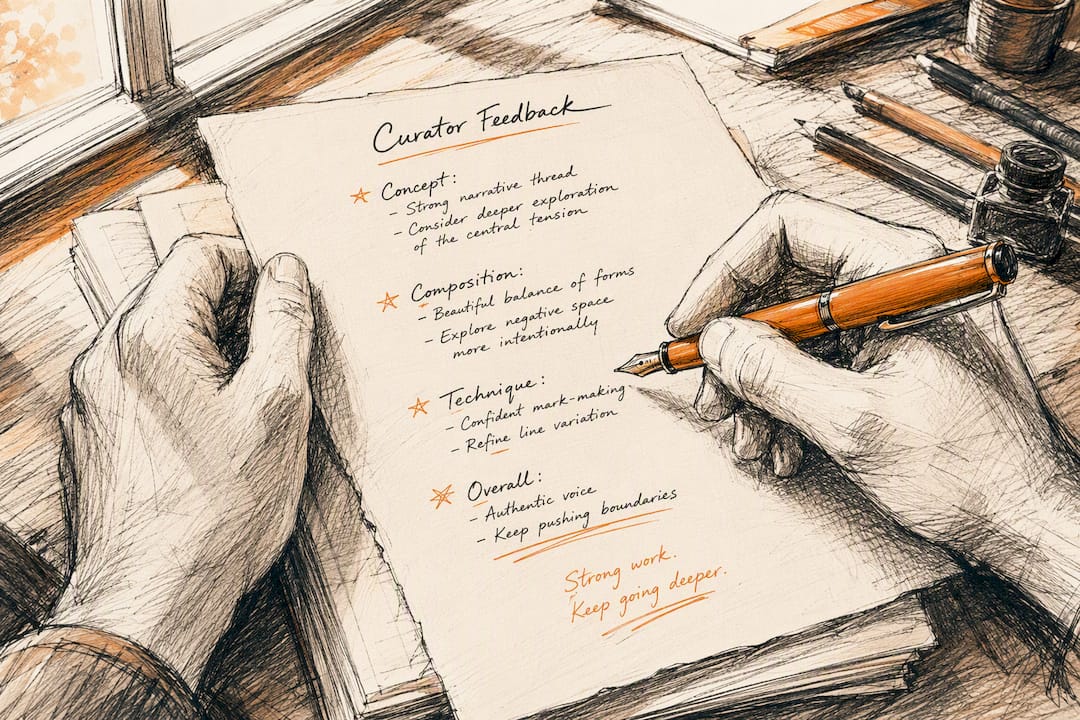 Curator Feedback
Concept:
- Strong narrative thread
- Consider deeper exploration
of the central tension
Composition:
- Beautiful balance of forms
- Explore negative space
more intentionally
Technique:
- Confident mark-making
- Refine line variation
Overall:
- Authentic voice
- Keep pushing boundaries
Strong work.
Keep going deeper.